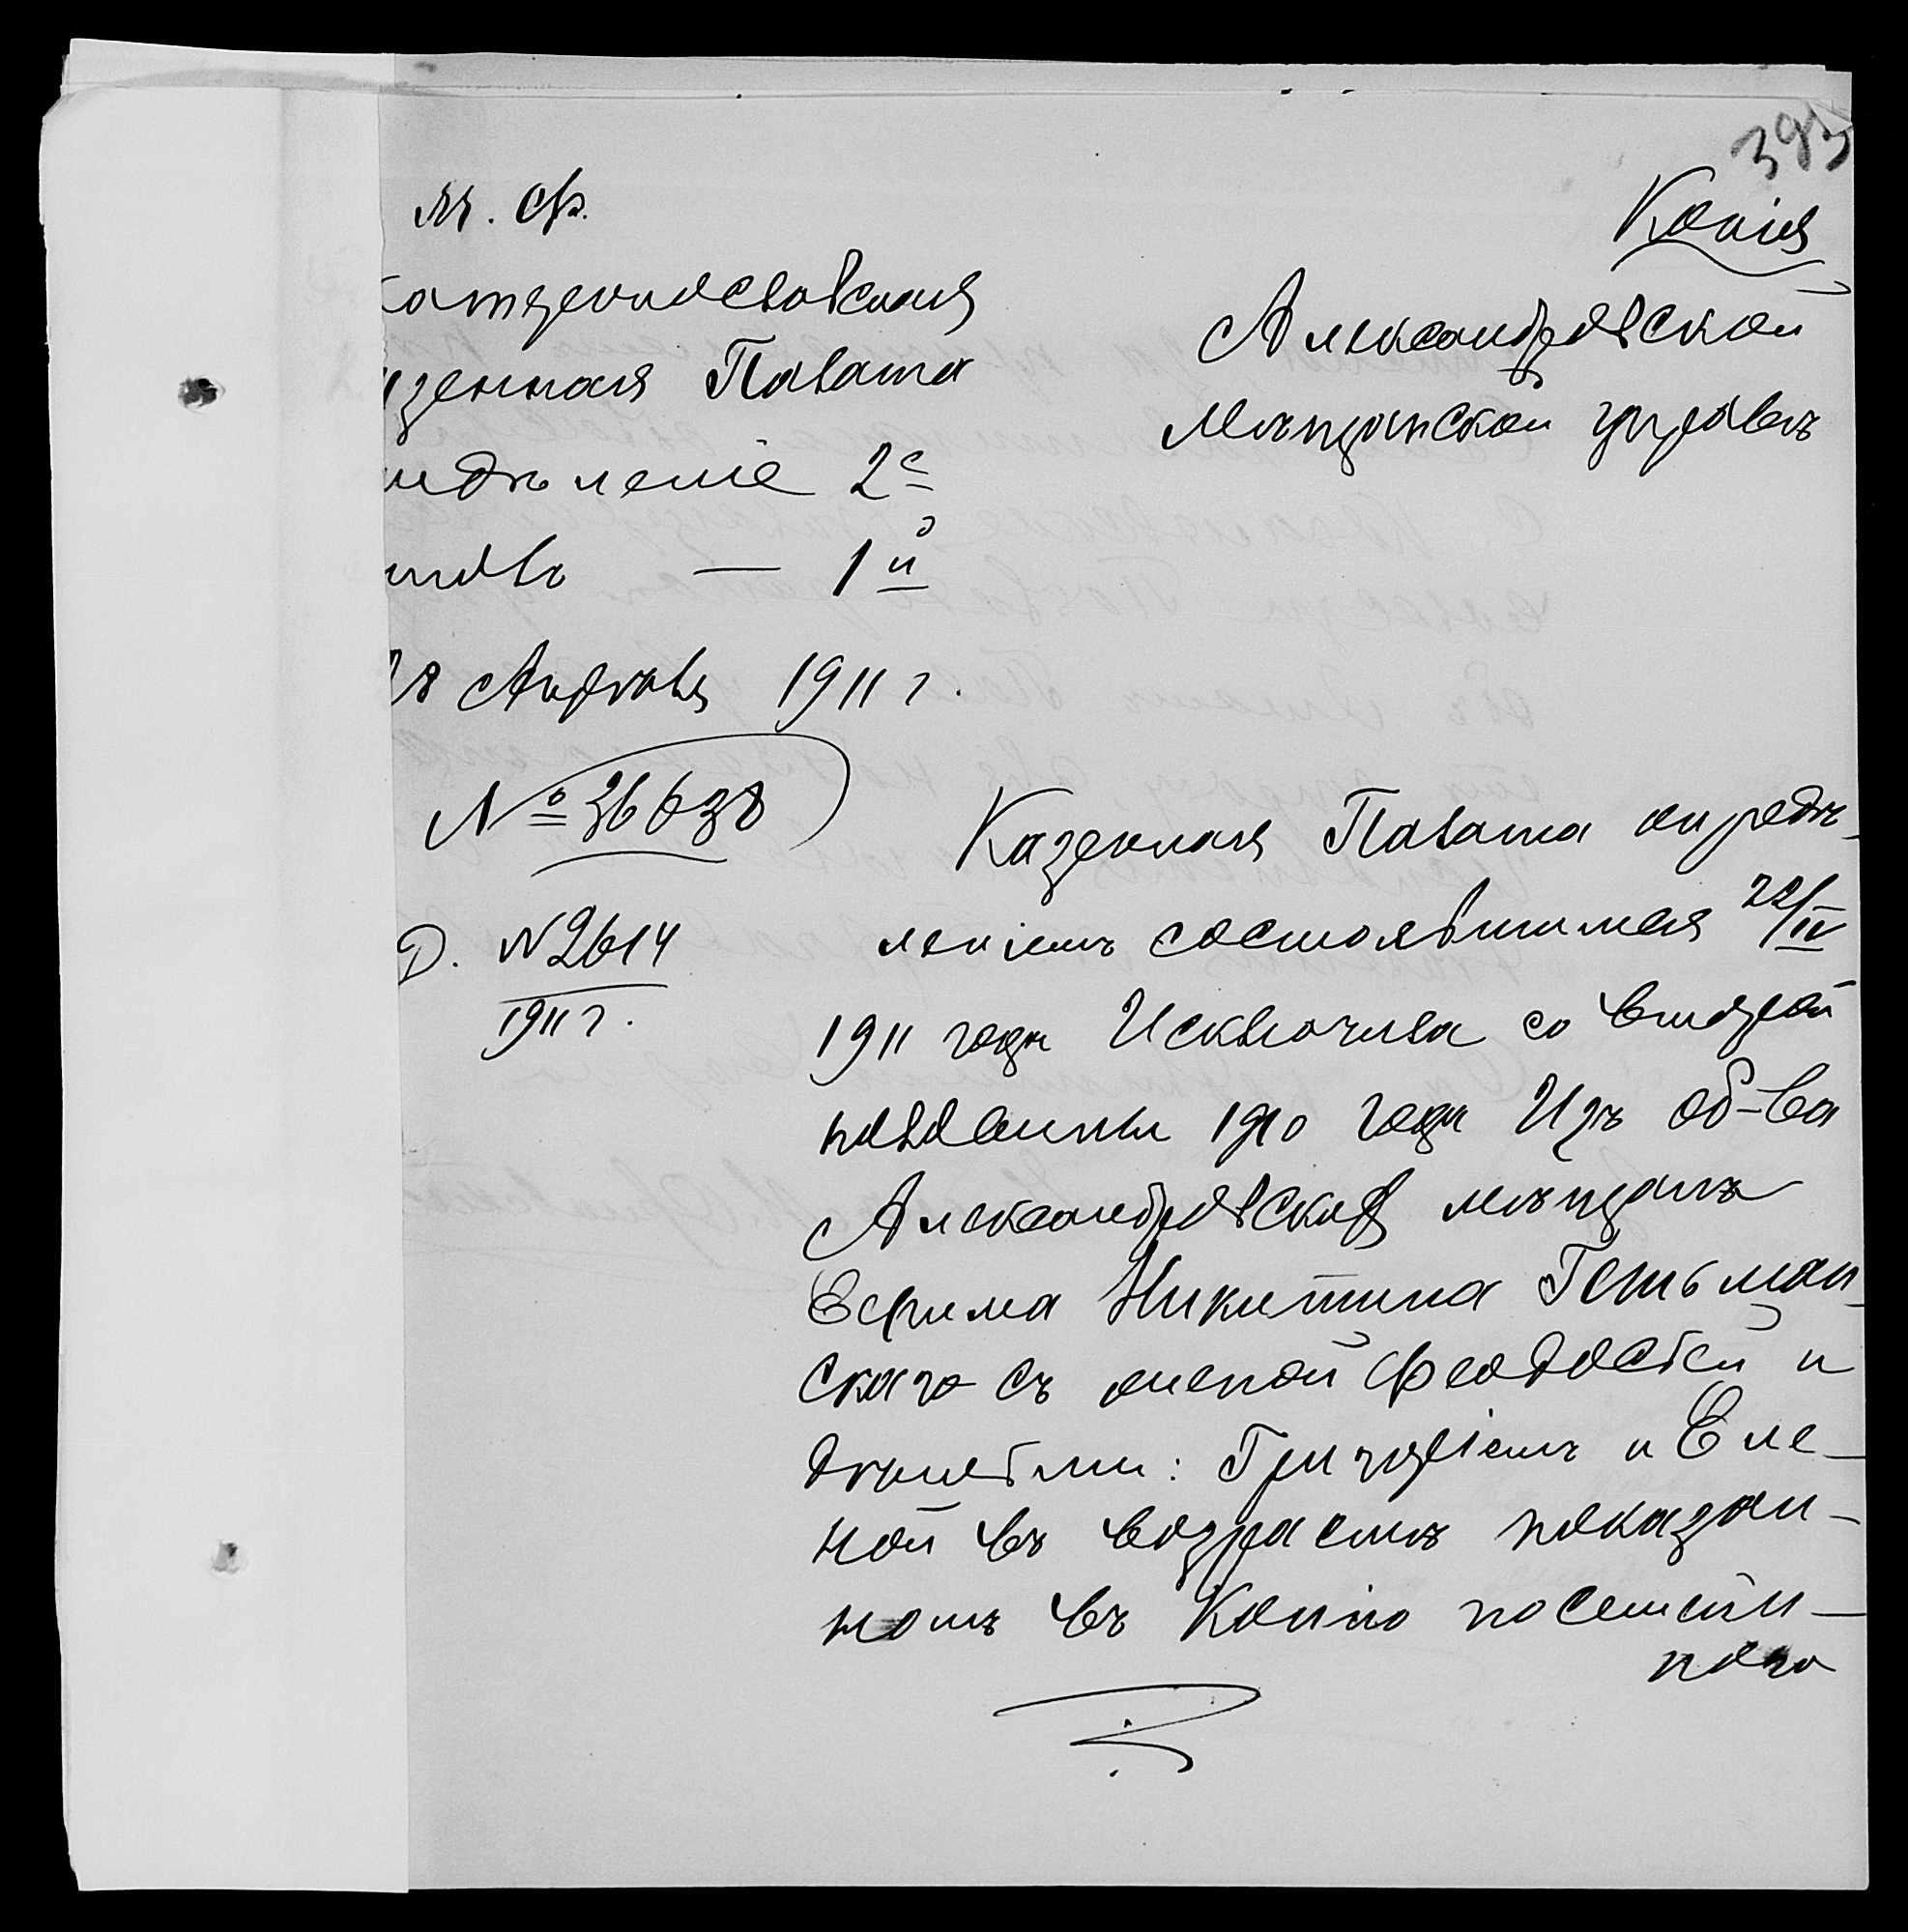 393
Копія
М. Ф.
катеринославская
зенная Палата
тдѣленіе 2е
столъ — 1й
28 Апрѣля 1911 г.
№ 36638
Д. № 2614
1911 г.
Александровской
Мѣщанской управѣ
Казенная Палата опредѣ-
леніемъ состоявшимся 22/IV
1911 года Исключила со второй
половины 1910 года Изъ об-ва
Александровскихъ мѣщанъ
Ефима Никитина Гетьман-
скаго съ женой Феодосіей и
дѣтьми: Григоріемъ и Еле-
ной въ возрастѣ показан-
номъ въ Копію посемей-
наго